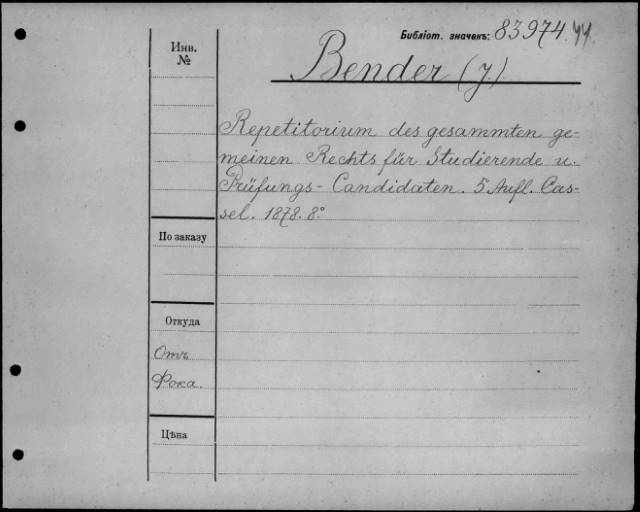 Библіот. значекъ: 83974.44.
Инв. №
Bender (J.)
Repetitorium des gesammten ge-
meinen Rechts für Studierende u.
Prüfungs-Candidaten. 5 Aufl. Cas-
sel. 1878. 8°
По заказу
Откуда
Отъ
Фока.
Цѣна